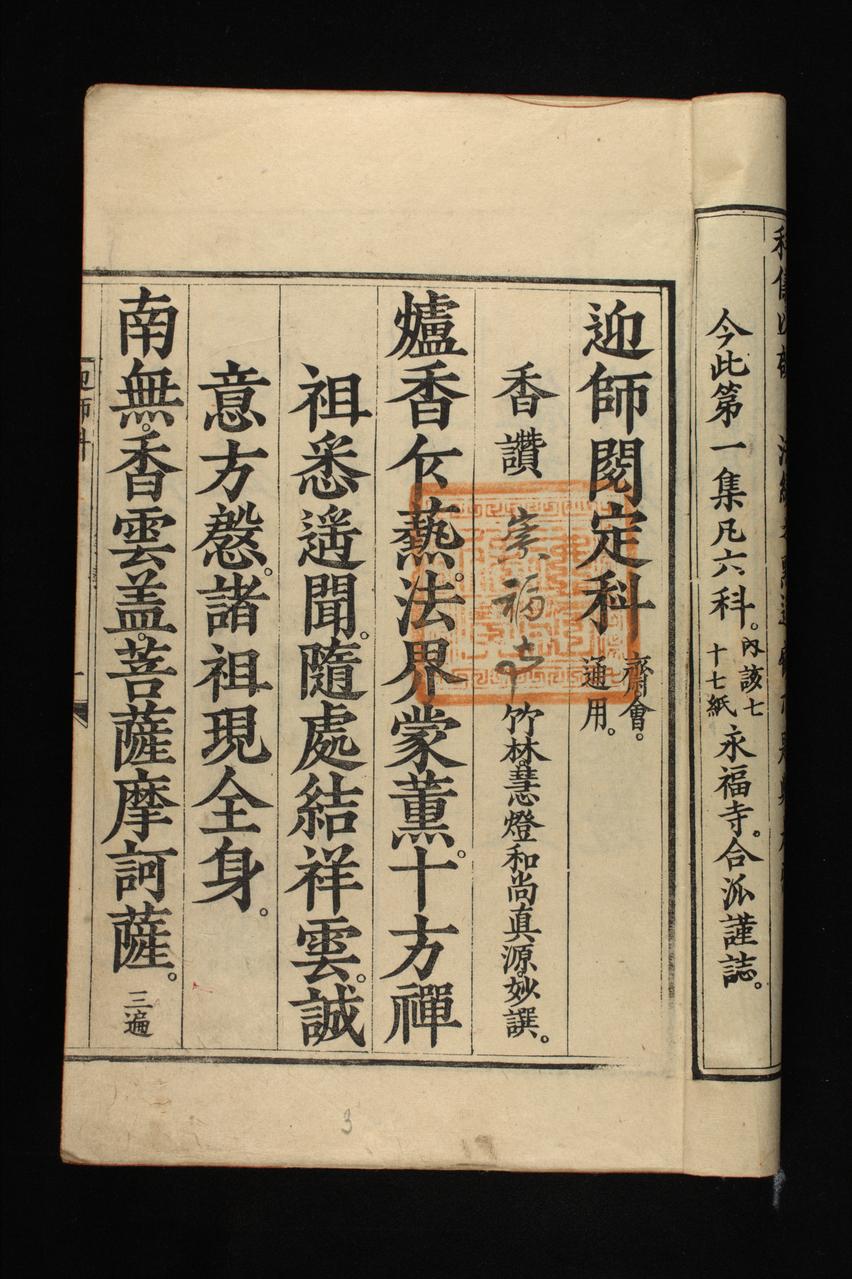 今此第一集凡六科。內該七十七紙 永福寺。合泒謹誌。
迎師閱定科 齋會。通用。
香讚 崇福寺 竹林。慧燈和尚真源。妙譔。
爐香乍爇。法界蒙薰。十方禪
祖悉遥聞。隨處結祥雲。誠
意方慇。諸祖現全身。
南無。香雲盖。菩薩摩訶薩。三遍
3